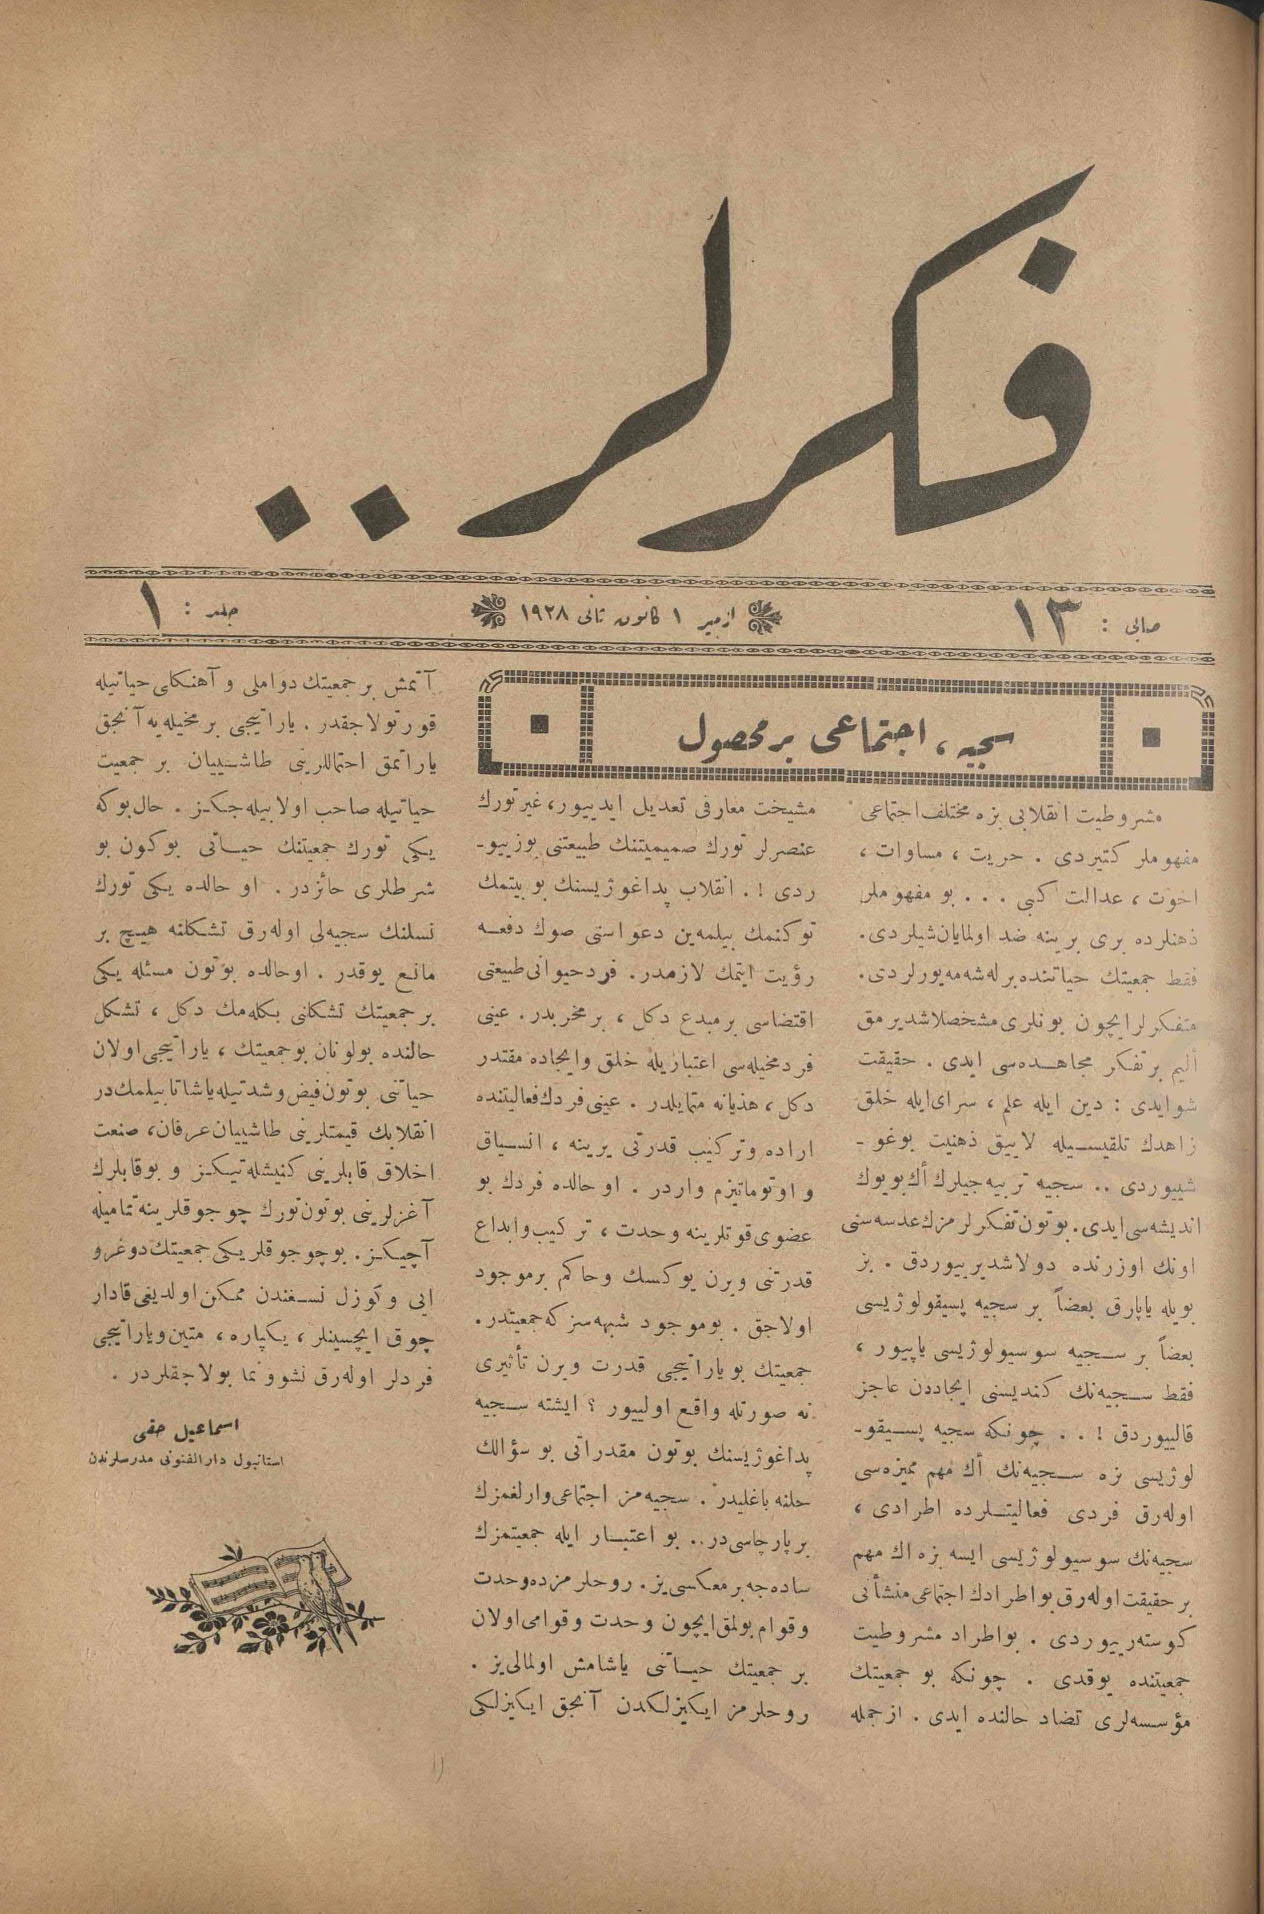 فكرلر..
صایی : ١٣
ازمیر ١ كانون ثانی ١٩٢٨
جلد : ١
سجیه ، اجتماعی بر محصول
مشروطیت انقلابی بزه مختلف اجتماعی
مفهوملر كتیردی . حریت ، مساوات ،
اخوت ، عدالت كبی ... بو مفهوملر
ذهنلرده بری برینه ضد اولمایان شیلردی.
فقط جمعیتك حیاتنده برله‌شه‌مه‌یورلردی.
متفكرلر ایچون بونلری مشخصلاشدیرمق
ألیم بر تفكر مجاهده‌سی ایدی . حقیقت
شو ایدی : دین ایله علم ، سرای ایله خلق
زاهدك تلقیسیله لاییق ذهنیت بوغو-
شییوردی .. سجیه تربیه‌جیلرك أك بویوك
اندیشه‌سی ایدی. بوتون تفكرلرمزك عدسه‌سنی
اونك اوزرنده دولاشدیرییوردق . بز
بویله یاپارق بعضاً بر سجیه پسیقولوژیسی
بعضاً بر سجیه سوسیولوژیسی یاپییور ،
فقط سجیه‌نك كندیسنی ایجاددن عاجز
قالییوردق ! .. چونكه سجیه پسیقو-
لوژیسی بزه سجیه‌نك أك مهم ممیزه‌سی
اوله‌رق فردی فعالیتلرده اطرادی ،
سجیه‌نك سوسیولوژیسی ایسه بزه اك مهم
بر حقیقت اوله‌رق بو اطرادك اجتماعی منشأنی
كوسته‌رییوردی . بو اطراد مشروطیت
جمعیتنده یوقدی . چونكه بو جمعیتك
مؤسسه‌لری تضاد حالنده ایدی . ازجمله
مشیخت معارفی تعدیل ایدییور، غیر تورك
عنصرلر تورك صمیمیتنك طبیعتنی بوزییو-
ردی !. انقلاب پداغوژیسنك بو بیتمك
توكنمك بیلمه‌ین دعواسنی صوك دفعه
رؤیت ایتمك لازمدر. فرد حیوانی طبیعتی
اقتضاسی بر مبدع دكل ، بر مخربدر. عینی
فرد مخیله‌سی اعتباریله خلق وایجاده مقتدر
دكل ، هذیانه متمایلدر . عینی فردك فعالیتنده
اراده و تركیب قدرتی یرینه ، انسیاق
و اوتوماتیزم واردر . او حالده فردك بو
عضوی قوتلرینه وحدت ، تركیب وابداع
قدرتنی ویرن یوكسك وحاكم بر موجود
اولاجق . بو موجود شبهه‌سز كه جمعیتدر.
جمعیتك بو یاراتیجی قدرت ویرن تأثیری
نه صورتله واقع اولییور ؟ ایشته سجیه
پداغوژیسنك بوتون مقدراتی بو سؤالك
حلنه باغلیدر . سجیه‌مز اجتماعی وارلغمزك
بر پارچاسی‌در.. بو اعتبار ایله جمعیتمزك
ساده‌جه بر معكسی‌یز. روحلرمزده وحدت
وقوام بولمق ایچون وحدت وقوامی اولان
بر جمعیتك حیاتنی یاشامش اولمالی‌یز .
روحلرمز ایكیزلكدن آنجق ایكیزلكی
آتمش بر جمعیتك دواملی و آهنكلی حیاتیله
قورتولاجقدر . یاراتیجی بر مخیله‌یه آنجق
یاراتمق احتماللرینی طاشییان بر جمعیت
حیاتیله صاحب اولابیله‌جكز . حال بوكه
یكی تورك جمعیتنك حیاتی بوكون بو
شرطلری حائزدر . او حالده یكی تورك
نسلنك سجیه‌لی اوله‌رق تشكلنه هیچ بر
مانع یوقدر . او حالده بوتون مسئله یكی
بر جمعیتك تشكلنی بكله‌مك دكل ، تشكل
حالنده بولونان بو جمعیتك ، یاراتیجی اولان
حیاتنی بوتون فیض وشدتیله یاشاتابیلمك‌در
انقلابك قیمتلرینی طاشییان عرفان، صنعت
اخلاق قابلرینی كنیشله‌تیكز و بو قابلرك
آغزلرینی بوتون تورك چوجوقلرینه تمامیله
آچیكز. بو چوجوقلر یكی جمعیتك دوغرو
ایی و كوزل نسغندن ممكن اولدیغی قادار
چوق ایچسینلر ، یكپاره ، متین و یاراتیجی
فردلر اوله‌رق نشوونما بولاجقلردر .
اسماعیل حقی
استانبول دارالفنونی مدرسلرندن